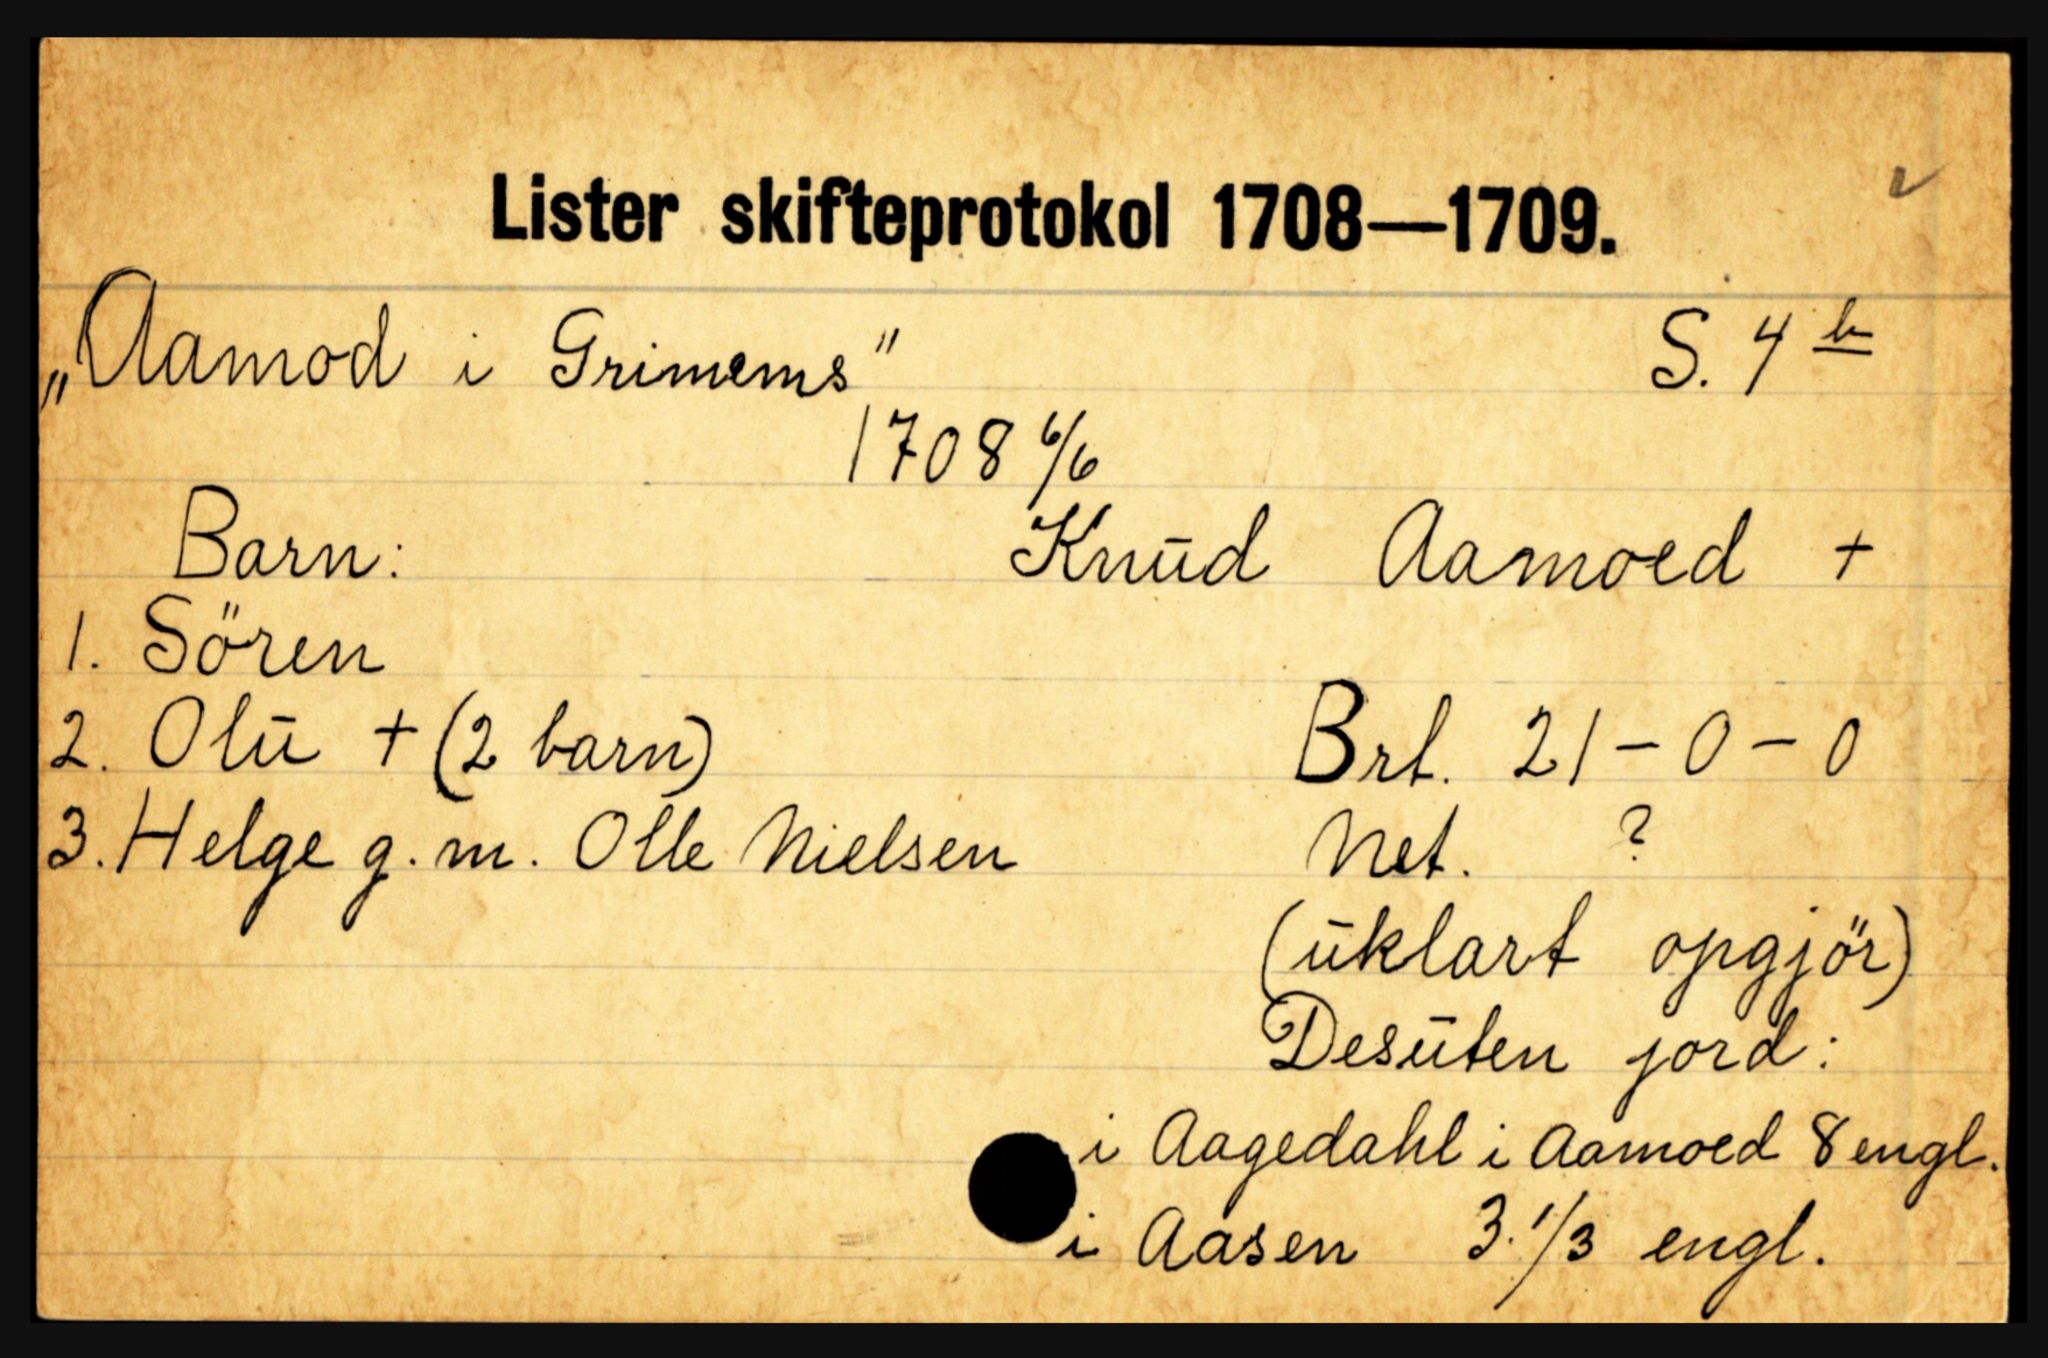 Lister skifteprotokol 1708—1709.
„Aamod i Grimems" S. 4 b
1708 6/6
Barn: Knud Aamoed +
1. Sören
2. Olu + (2 barn) Brt. 21-0-0
3. Helge g. m. Olle Nielsen Net. ?
(uklart opgjör)
Desuten jord:
i Aagedahl i Aamoed 8 engl.
i Aasen 3. 1/3 engl.